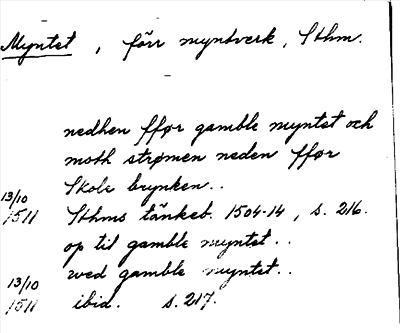 Myntet, förr myntverk, Sthm.
nedhen fför gamble myntet och
moth strömen neden fför
Skole brynken..
13/10
1511 Sthms tänkeb. 1504-14, s. 216.
op til gamble myntet..
wed gamble myntet..
13/10
1511 ibid. s. 217.